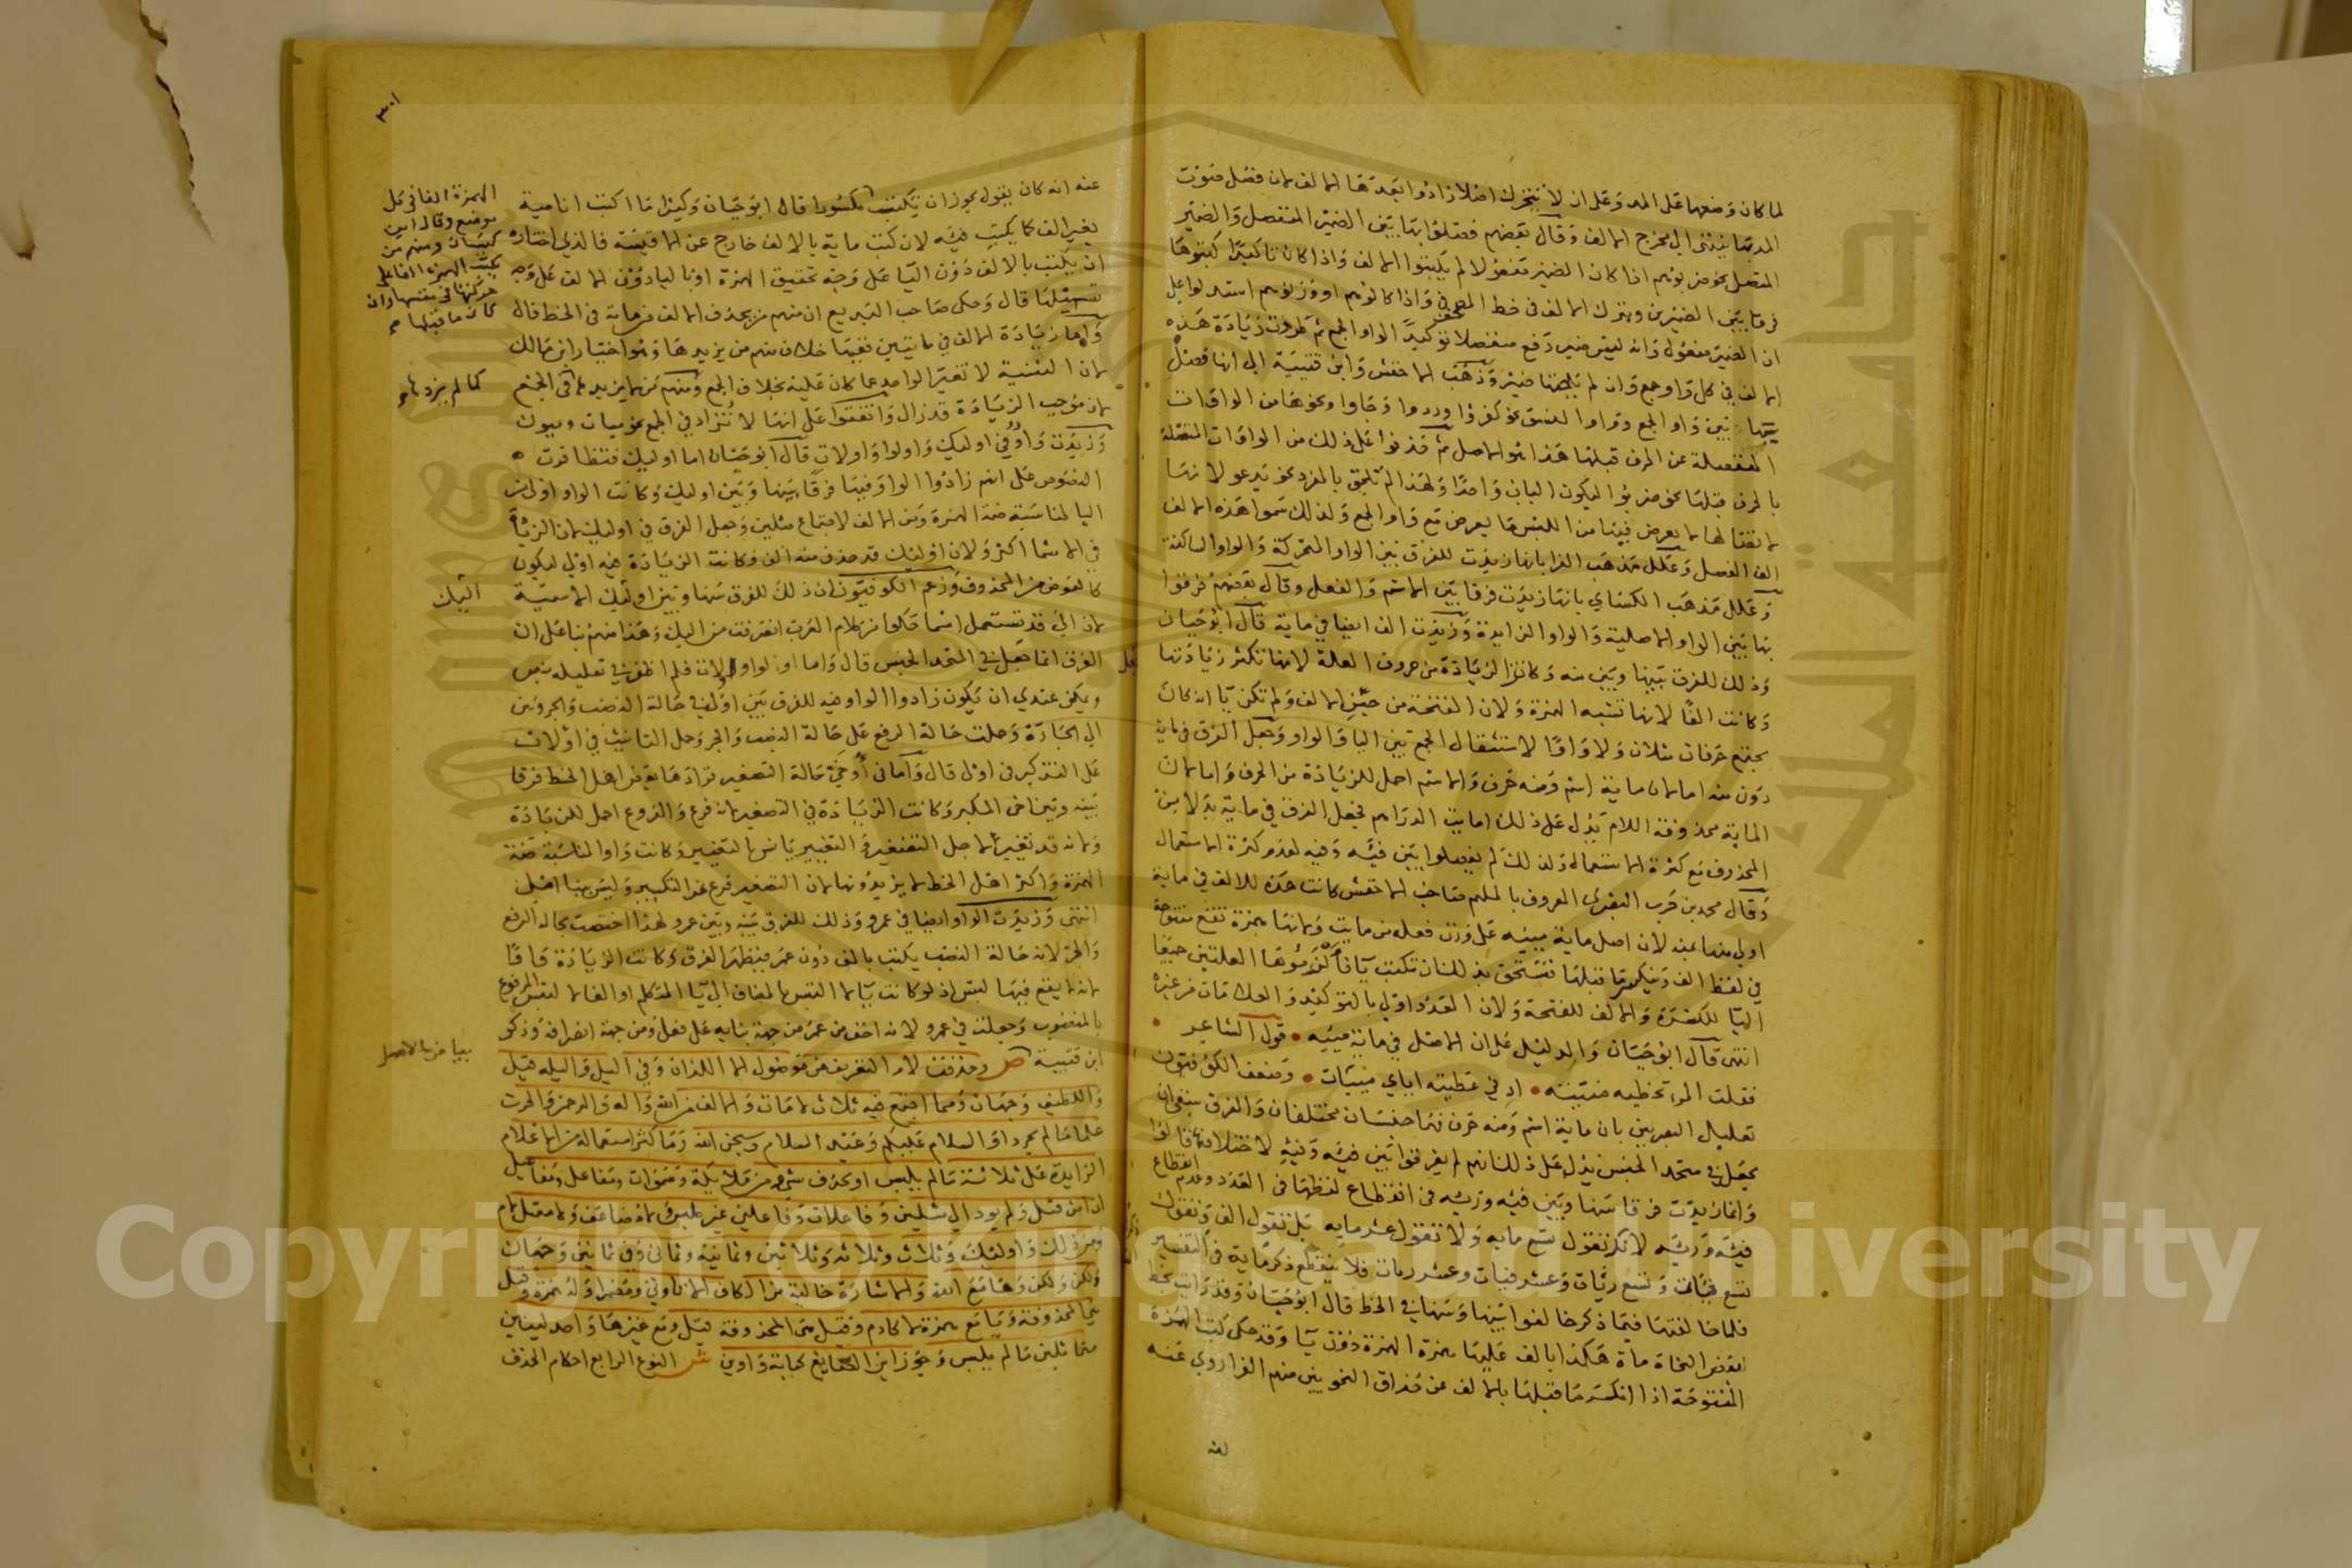 لما كان وضعها على المد وعلى ان لا تتحرك اصلا زادوا بعدها الالف لان فصل صوت
المد بها ينتهى الى مخرج الالف وقال بعضهم فصلوا بها بين الضمير المنفصل والضمير
المتصل نحو ضربوهم اذا كان الضمير مفعولا لم يكتبوا الالف واذا كان تاكيدا كتبوها
فرقا بين الضميرين وبترك الالف فى خط المصحف فى واذا كالوهم او وزنوهم استدلوا على
ان الضمير مفعول وانه ليس ضمير رفع منفصلا توكيدا لواو الجمع ثم طردت زيادة هذه
الالف في كل واو جمع وان لم يلحقها ضمير وذهب الاخفش وابن قتيبة الى انها فصل
بها بين واو الجمع وواو النسق نحو كفروا وردوا وجاوا ونحوها من الواوات
المنفصلة عن الحرف قبلها هذا هو الاصل ثم قدنوا على ذلك من الواوات المتصلة
بالحرف قبلها نحو ضربوا ليكون الباب واحدا ولهذا لم تلحق بالمفرد نحو يدعو لانها
لاتصالها لا يعرض فيها من اللبس ما يعرض مع واو الجمع ولذلك سموا هذه الالف
الف الفصل وعلل مذهب الفرا بانها زيدت للفرق بين الواو المتحركة والواو الساكنة
وعلل مذهب الكساي بانها زيدت فرقا بين الاسم والفعل وقال بعضهم فرقوا
بها بين الواو الاصلية والواو الزايدة وزيدت الف ايضا في ماية قال ابو حيان
وذلك للفرق بينها وبين منه وكانت الزيادة من حروف العلة لانها تكثر زيادتها
وكانت الفا لانها تشبه الهمزة ولان الفتحة من حيز الالف ولم تكن يا انه كان
يجتمع حرفان مثلان ولا واوا لاستثقال الجمع بين اليا والواو وجعل الفرق في ماية
دون منه اما لان ماية اسم ومنه حرف والاسم احمل للزيادة من الحرف واما لان
الماية محذوفة اللام يدل على ذلك امايت الدراهم فجعل الفرق في ماية بدلا من
المحذوف مع كثرة الاستعمال ولذلك لم يفصلوا بين فيه وفيه لعدم كثرة الاستعمال
وقال محمد بن حرب البصرى المعروف بالملهم صاحب الاخفش كانت هذه للالف في ماية
اولى منها بمنه لان اصل ماية مييه على وزن فعله من مايت ولانها همزة تقع مفتوحة
في لفظ الف وينكسر ما قبلها فتستحق بذلك ان تكتب يا فالزموها العلتين جميعا
اليا للكسرة والالف للفتحة ولان العدد اولى بالتوكيد والعلامات من غيره
انتهى قال ابو حيان والدليل على ان الاصل في ماية مييه قول الشاعر
فقلت المر تخطيه منيته ادنى عطيته اياي مييات وضعف الكوفيون
تعليل البصريين بان ماية اسم ومنه حرف فهما جنسان مختلفان والفرق ينبغى ان
يجعل في متحد الجنس يدل على ذلك انهم لم يفرقوا بين فيه وفيه لاختلافهما قالوا
وانما زيدت فرقا بينها وبين فيه وريه فى انقطاع لفظها في العدد وعدم انقطاع
فيه وريه لانك تقول تسع مايه ولا تقول عشر مايه بل تقول الف وتقول
تسع فيات وتسع ريات وعشر فيات وعشر ريات فلا ينقطع ذكر ماية فى التفسير
فلما خالفتها فيما ذكر خالفوا بينها وبينها في الخط قال ابو حيان وقد رايت بخط
بعض النحاة مأة هكذا بالف عليها همزة دون يا وقد حكى كتب الهمزة
المفتوحة اذا انكسر ما قبلها بالالف عن حذاق النحويين منهم الفرا روي عنه
عنه
٣٠١
عنه انه كان يقول يجوز ان يكتب مكسورا قال ابو حيان وكثيرا ما اكتب انا مية
بغير الف كما يكتب فيه لان كتب ماية بالالف خارج عن القياس فالذى اختاره
ان يكتب بالالف دون اليا على وجه تحقيق الهمزة او باليا دون الالف على وجه
تسهيلها قال وحكى صاحب البديع ان منهم من يحذف الالف من ماية في الخط قال
واما زيادة الالف في مايتين ففيها خلاف منهم من يزيدها وهو اختيار ابن مالك
لان التثنية لا تغير الواحد عما كان عليه بخلاف الجمع ومنهم من لا يزيد لا فى الجمع
لان موجب الزيادة قد زال واتفقوا على انها لا تزاد في الجمع نحو ميات وميون
وزيدت واو في اوليك واولوا واولات قال ابو حيان اما اوليك فتظافرت
النصوص على انهم زادوا الواو فيها فرقا بينها وبين اليك وكانت الواو اولى من
اليا لمناسبة ضمة الهمزة ومن الالف لاجتماع مثلين وجعل الفرق في اوليك لان الزيادة
في الاسما اكثر ولان اوليك قد حذف منه الف وكانت الزيادة فيه اولى ليكون
كالعوض من المحذوف وزعم الكوفيون ان ذلك للفرق بينها وبين اوليك الاسمية
لان الى قد تستعمل اسما حكوا من كلام العرب انصرفت من اليك وهذا منهم بنا على ان
الفرق انما جعل في المتحد الجنس قال واما اولوا واولات فلم اظفر في تعليله بنص
ويمكن عندي ان يكون زادوا الواو فيه للفرق بين اولى في حالة النصب والجر وبين
الى الجارة وحملت حالة الرفع على حالة النصب والجر وحمل التانيث في اولات
على التذكير فى اولى قال واما فى أوخي حالة التصغير فزادها بعض اهل الخط فرقا
بينه وبين اخي المكبر وكانت الزيادة في التصغير لانه فرع والفروع احمل للزيادة
ولانه قد تغير لاجل التصغير والتغيير يانس بالتغيير وكانت واوا لمناسبة ضمة
الهمزة واكثر اهل الخط لا يزيدونها لان التصغير فرع عن التكبير وليس بنا اصلى
انتهى وزيدت الواو ايضا في عمرو وذلك للفرق بينه وبين عمر ولهذا اختصت بحالة الرفع
والجر لانه حالة النصب يكتب بالف دون عمر فيظهر الفرق وكانت الزيادة واوا
لانه لا يقع فيها لبس اذ لو كانت يا لالتبس بالمضاف الى يا المتكلم او الفا لالتبس المرفوع
بالمنصوب وجعلت في عمرو لانه اخف من عمر من جهة بنايه على فعل ومن جهة انصرافه وذكر
ابن قتيبة ص وحذفت لام التعريف من موصول الا اللذان وفي الليل والليله قيل
واللطيف وجهان ومما اجتمع فيه ثلاث لامات والالف من الله واله والرحمن والحرث
علما ما لم يجرد او السلام عليكم وعبد السلام وسبحن الله وما كثر استعماله من الاعلام
الزايدة على ثلاثة ما لم يلبس او يحذف شي ومن ملائكة وسموات ومفاعل ومفاعيل
ان امن قيل ولم يود الى مثلين وفاعلات وفاعلين غير ملبس لا مضاعف ولا معتل لام
ومن ذلك واولئك وثلاث وثلاثه وثلاثين وثمانية وثمانى وفى ثمانين وجهان
ولكن ولكن وها مع الله والاشارة خالية من الكاف الا تا وتي ومضمر اوله همزة وقيل
يا المحذوفة ويا مع همزة لا كادم وقيل هى المحذوفة قيل ومع غيرها واحد لينين
متماثلين ما لم يلبس وجوز ابن الضايغ كتابة واوين ش النوع الرابع احكام الحذف
الهمزة الفا فى كل
موضع وقال ابن
كيسان ومنهم من
يكتب الهمزة الفا على
حركتها فى نفسها وان
كان ما قبلها
كما لم يزد
اليك
بياض بالاصل
Copyright © King Saud University
جامعة الملك سعود